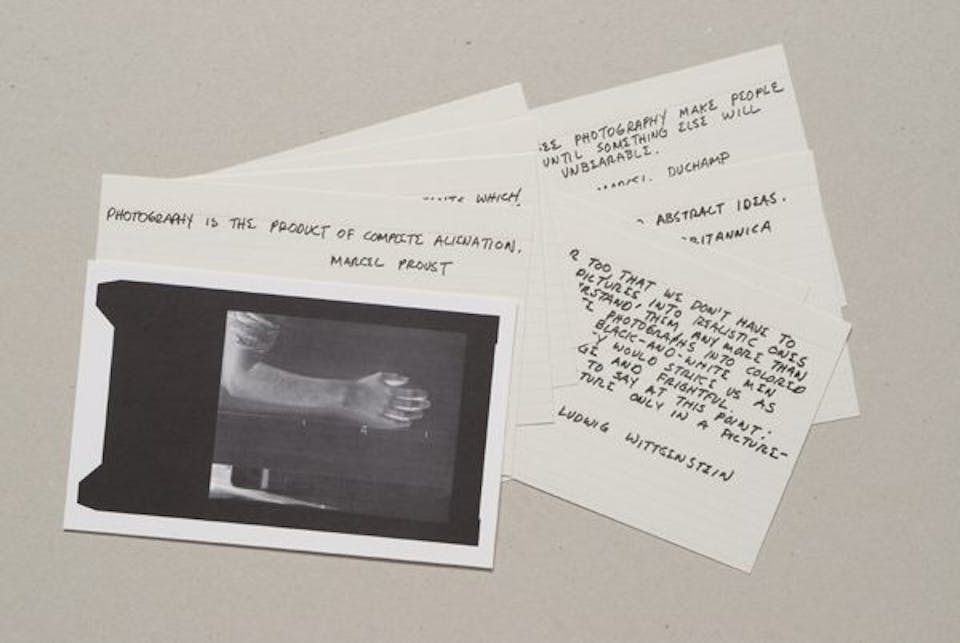 EE PHOTOGRAPHY MAKE PEOPLE
UNTIL SOMETHING ELSE WILL
UNBEARABLE.
DUCHAMP
WHICH
ABSTRACT IDEAS.
BRITANNICA
PHOTOGRAPHY IS THE PRODUCT OF COMPLETE ALIENATION.
MARCEL PROUST
R TOO THAT WE DON'T HAVE TO
PICTURES INTO REALISTIC ONES
RSTAND' THEM ANY MORE THAN
E PHOTOGRAPHS INTO COLORED
BLACK-AND-WHITE MEN
Y WOULD STRIKE US AS
GE AND FRIGHTFUL.
TO SAY AT THIS POINT:
TURE ONLY IN A PICTURE-
LUDWIG WITTGENSTEIN